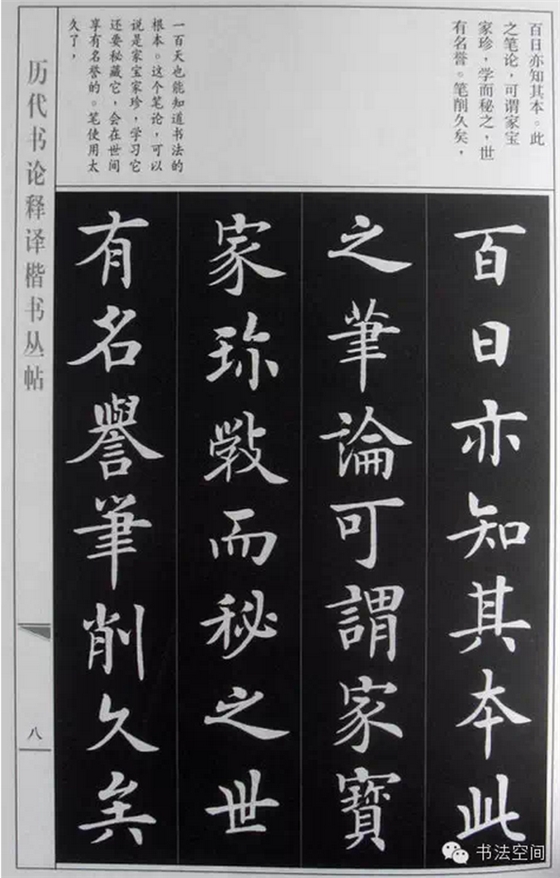 百日亦知其本。此
之笔论，可谓家宝
家珍，学而秘之，世
有名誉。笔削久矣，
一百天也能知道书法的
根本。这个笔论，可以
说是家宝家珍，学习它
还要秘藏它，会在世间
享有名誉的。笔使用太
久了，
百日亦知其本此
之筆論可謂家寶
家珎斆而秘之世
有名譽筆削久矣
历代书论释译楷书丛帖
八
书法空间